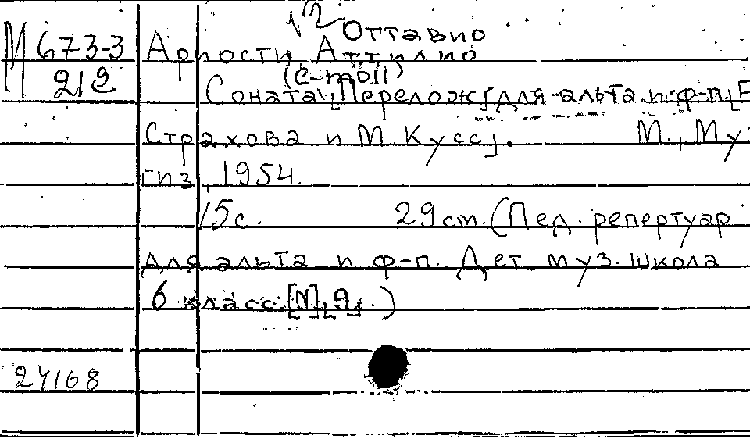 √2 Оттавио
М 673-3 Ариости, Аттилио
212 (c-moll)
Соната. [Перелож.] для альта и ф-п. [Е
Страхова и М. Кусс]. М., Муз
гиз, 1954.
15 с. 29 cm. (Пед. репертуар
для альта и ф-п. Дет. муз. школа
6 класс. [№]. 9. )
24168